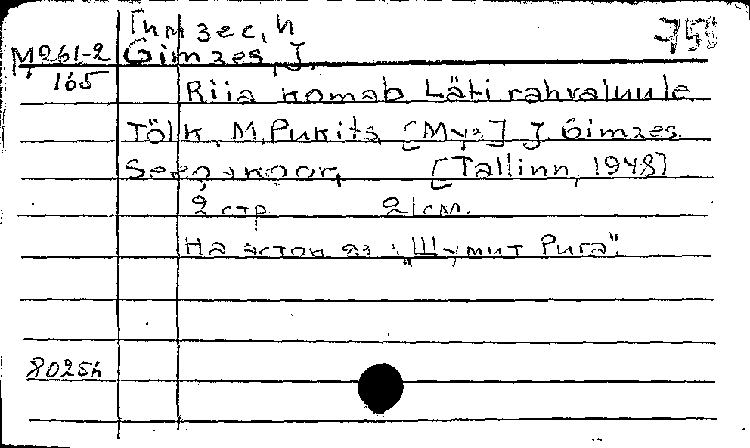 Гимзес, И
758
М261-2
165
Gimzes, J.
Riia komab Läti rahvaluule
Tölk. M. Pukits [Муз.] J. Gimzes
Segakoor, [Tallinn, 1948]
2 стр 21 см.
На эстон яз: „Шумит Рига".